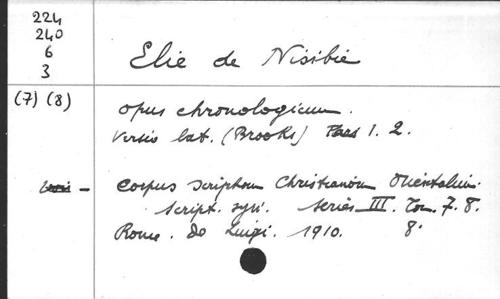 224
240
6
3
Elie de Nisibie
(7) (8)
Opus chronologicum.
Versio lat. (Brooks) Pars 1. 2.
- Corpus Scriptorum Christianorum Orientalium.
Script. syri. Series III. Tom. 7. 8.
Rome. De Luigi. 1910. 8°.